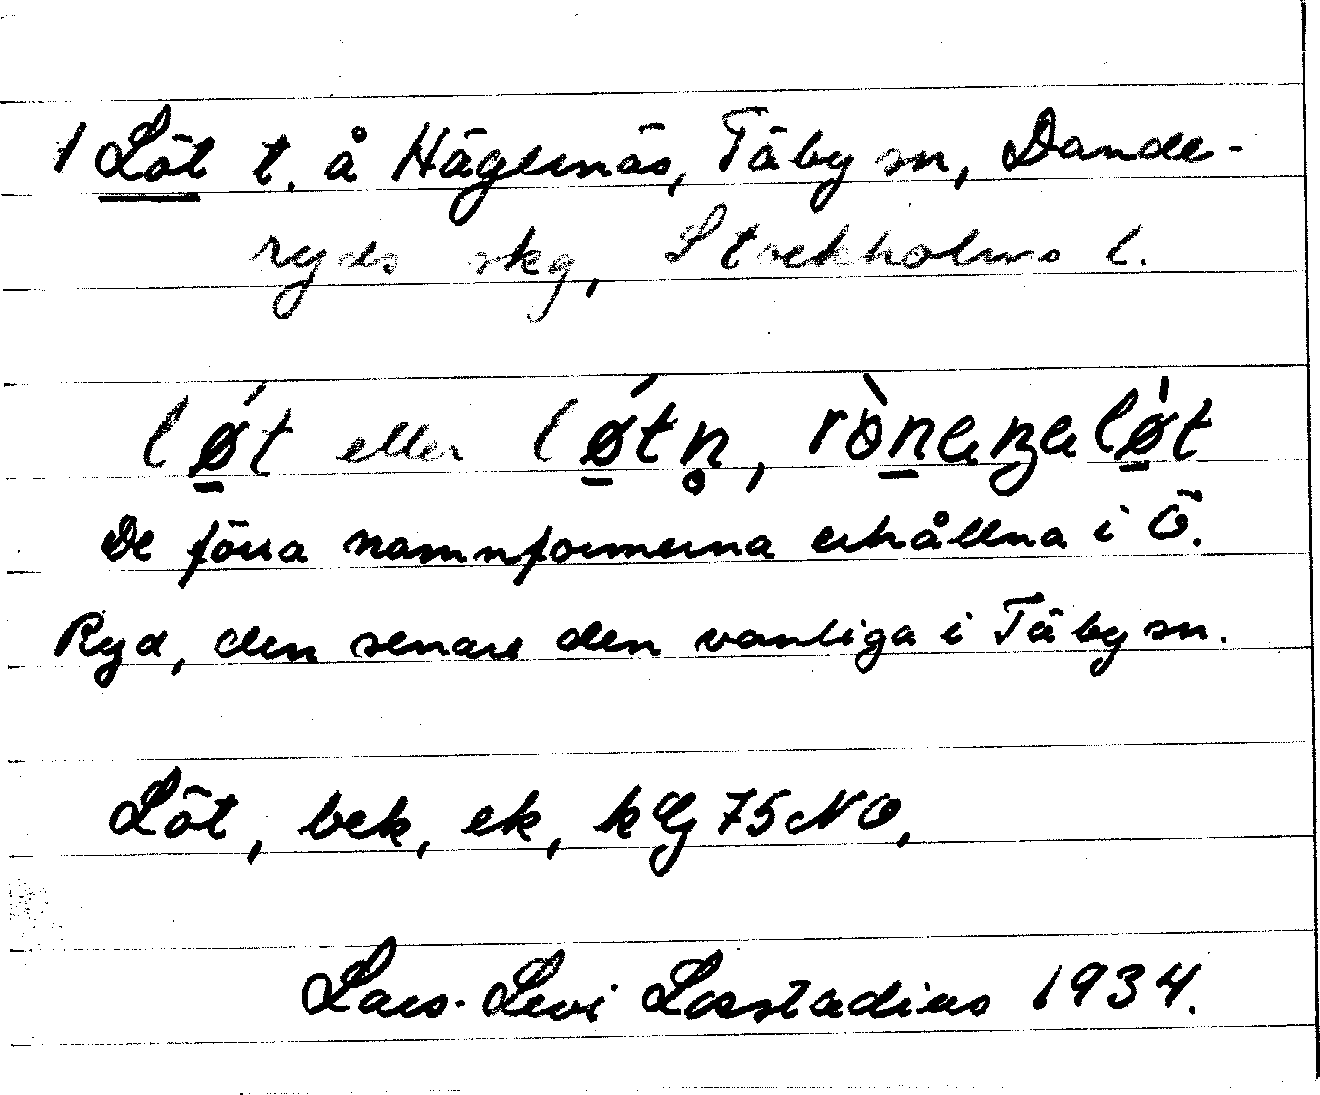 1 Löt t. å Hägernäs, Täby sn, Dande-
ryds skg, Stockholms l.
lǿ̲t eller lǿ̲tn̥,
De förra namnformerna erhållna i Ö.
Ryd, den senare den vanliga i Täby sn.
Löt, bek, ek, kG 75 NO,
Lars-Levi Læstadius 1934.